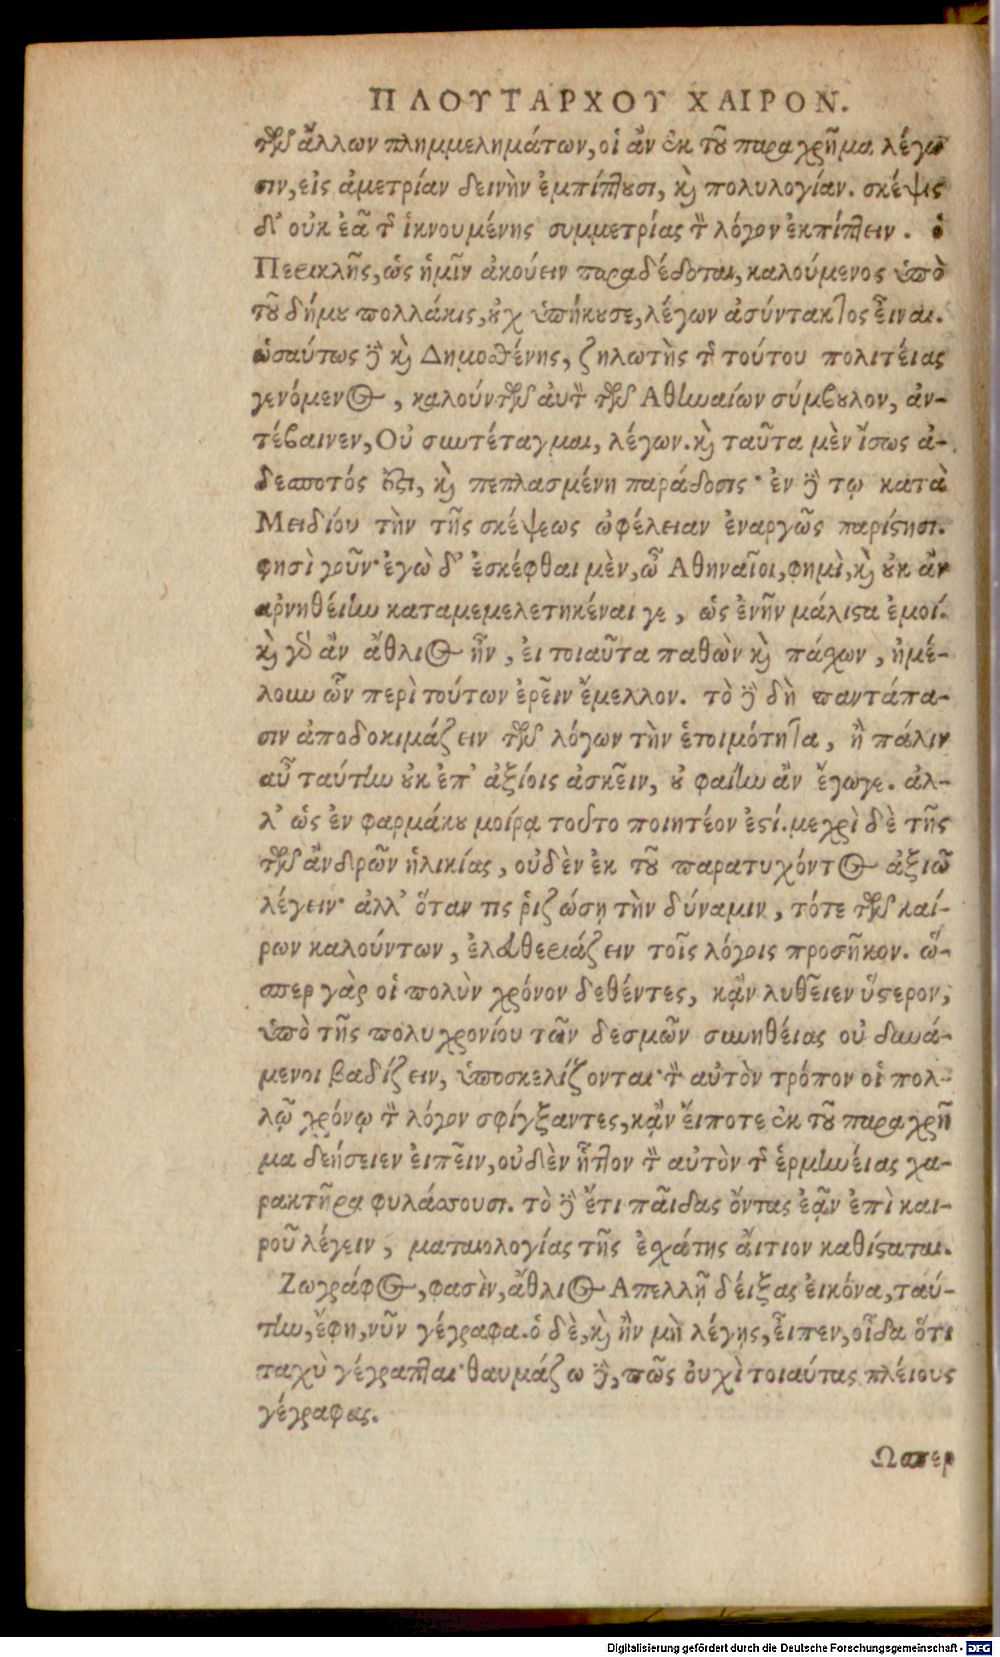 ΠΛΟΥΤΑΡΧΟΥ ΧΑΙΡΟΝ.
τῶν ἄλλων πλημμελημάτων, οἱ ἂν ἐκ τοῦ παραχρῆμα λέγω
σιν, εἰς ἀμετρίαν δεινὴν ἐμπίπτουσι, καὶ πολυλογίαν. σκέψις
δ' οὐκ ἐᾶ τῆς ἱκνουμένης συμμετρίας τὸν λόγον ἐκπίπτειν. ὁ
Περικλῆς, ὡς ἡμῖν ἀκούειν παραδέδοται, καλούμενος ὑπὸ
τοῦ δήμου πολλάκις, οὐχ ὑπήκουσε, λέγων ἀσύντακτος εἶναι.
ὡσαύτως δὲ καὶ Δημοσθένης, ζηλωτὴς τῆς τούτου πολιτείας
γενόμενος, καλούντων αὐτὸν τῶν Αθηναίων σύμβουλον, ἀν-
τέβαινεν, Οὐ συντέταγμαι, λέγων. καὶ ταῦτα μὲν ἴσως ἀ-
δέσποτός ἐστι, καὶ πεπλασμένη παράδοσις· ἐν δὲ τῳ κατὰ
Μειδίου τὴν τῆς σκέψεως ὠφέλειαν ἐναργῶς παρίστησι.
φησὶ γοῦν· ἐγὼ δ' ἐσκέφθαι μὲν, ὦ Αθηναῖοι, φημὶ, καὶ οὐκ ἂν
αρνηθείην καταμεμελετηκέναι γε, ὡς ἐνῆν μάλιστα ἐμοί.
καὶ γὰρ ἂν ἄθλιος ἦν, εἰ τοιαῦτα παθὼν καὶ πάσχων, ἠμέ-
λουν ὧν περὶ τούτων ἐρεῖν ἔμελλον. τὸ δὲ δὴ παντάπα-
σιν ἀποδοκιμάζειν τῶν λόγων τὴν ἑτοιμότητα, ἢ πάλιν
αὖ ταύτην οὐκ ἐπ' ἀξίοις ἀσκεῖν, οὐ φαίην ἂν ἔγωγε. ἀλ-
λ' ὡς ἐν φαρμάκου μοίρᾳ τοῦτο ποιητέον ἐστί. μεχρὶ δὲ τῆς
τῶν ἄνδρῶν ἡλικίας, οὐδὲν ἐκ τοῦ παρατυχόντος ἀξιῶ
λέγειν· ἀλλ' ὅταν τις ῥιζώσῃ τὴν δύναμιν, τότε τῶν καί-
ρων καλούντων, ἐλευθεριάζειν τοῖς λόγοις προσῆκον. ὥ-
σπερ γὰρ οἱ πολὺν χρόνον δεθέντες, κᾂν λυθεῖεν ὕστερον,
ὑπὸ τῆς πολυχρονίου τῶν δεσμῶν συνηθείας οὐ δυνά-
μενοι βαδίζειν, ὑποσκελίζονται· τὸν αὐτὸν τρόπον οἱ πολ-
λῷ χρόνῳ τὸν λόγον σφίγξαντες, κᾂν εἴποτε ἐκ τοῦ παραχρῆ
μα δεήσειεν εἰπεῖν, οὐδὲν ἧττον τὸν αὐτὸν τῆς ἑρμηνείας χα-
ρακτῆρα φυλάσσουσι. τὸ δὲ ἔτι παῖδας ὄντας ἐᾷν ἐπὶ και-
ροῦ λέγειν, ματαιολογίας τῆς ἐσχάτης αἴτιον καθίσταται.
Ζωγράφος, φασὶν, ἄθλιος Απελλῇ δείξας εἰκόνα, ταύ-
την, ἔφη, νῦν γέγραφα. ὁ δὲ, καὶ ἢν μὴ λέγῃς, εἶπεν, οἶδα ὅτι
ταχὺ γέγραπται· θαυμάζω δὲ, πῶς οὐχὶ τοιαύτας πλείους
γέγραφας.
Ωσπερ
Digitalisierung gefördert durch die Deutsche Forschungsgemeinschaft - DFG